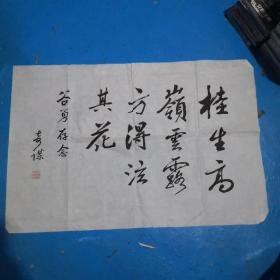 桂生高
嶺雲露
方得泫
其花
谷勇存念
奇谋